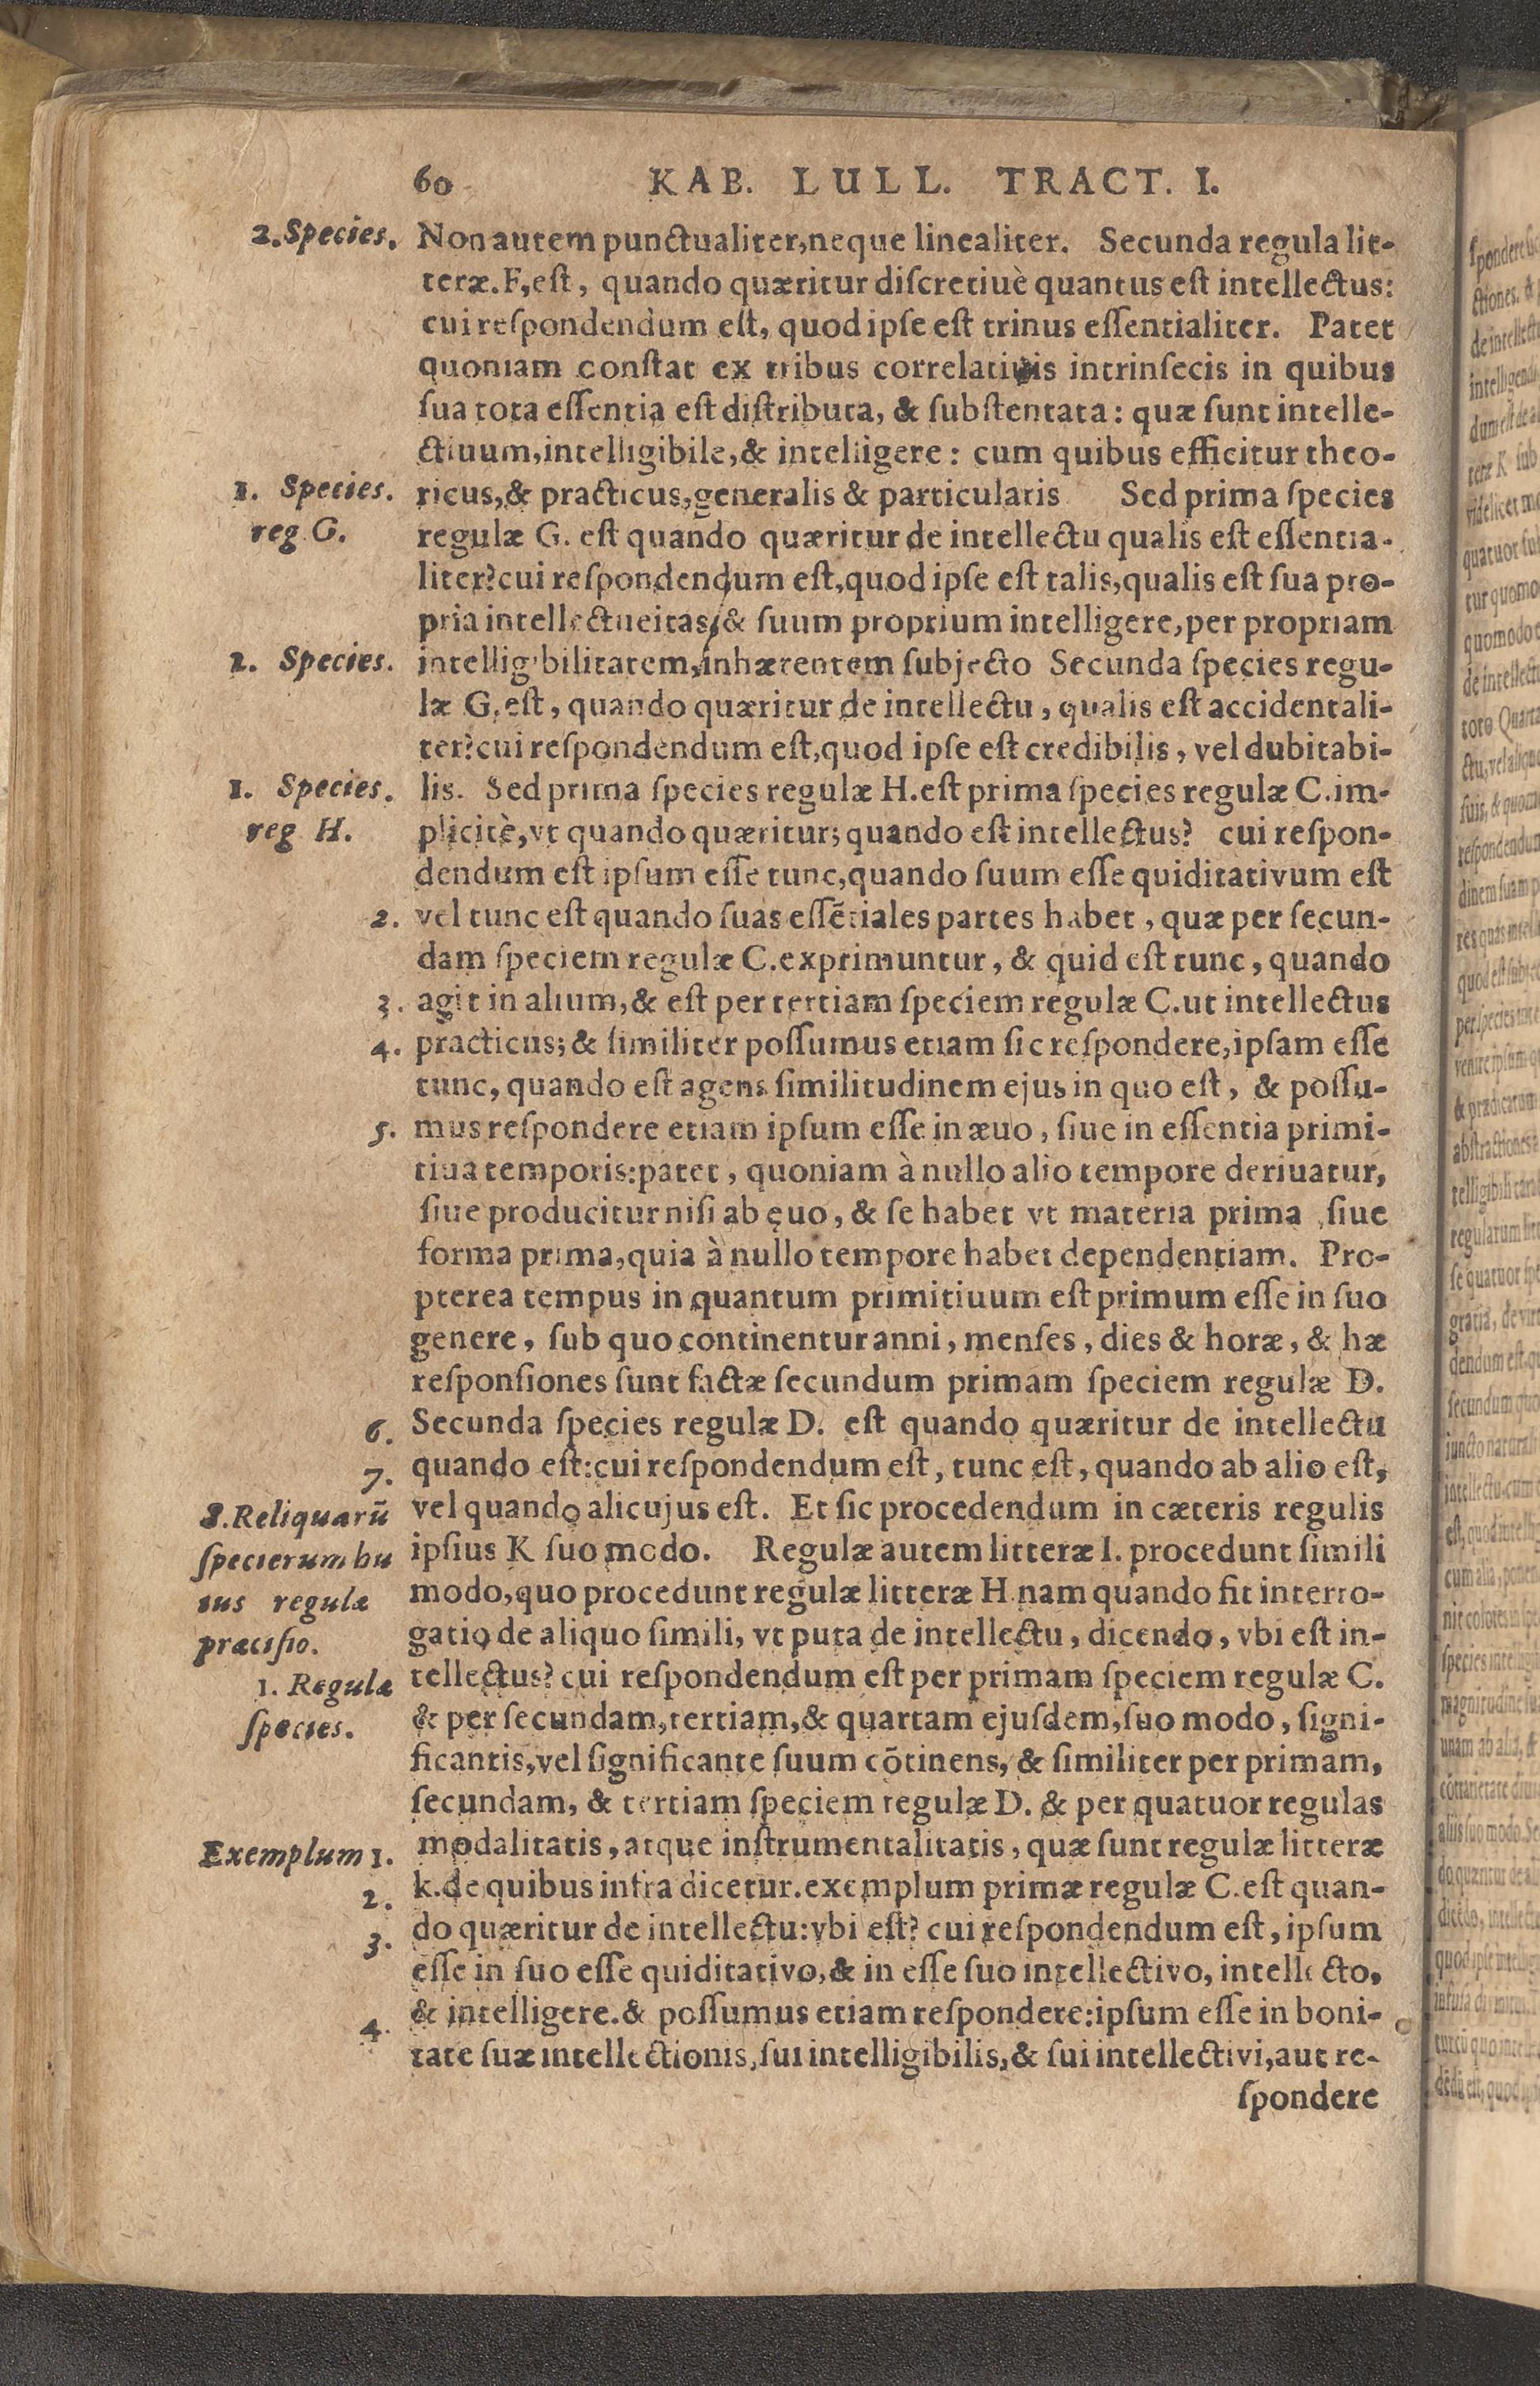 60 KAB. LULL. TRACT. I.
2.Species. Non autem punctualiter,neque linealiter. Secunda regula lit-
teræ.F,est, quando quæritur discretiuè quantus est intellectus:
cui respondendum est, quod ipse est trinus essentialiter. Patet
quoniam constat ex tribus correlatiuis intrinsecis in quibus
sua tota essentia est distributa, & substentata: quæ sunt intelle-
ctiuum,intelligibile,& intelligere: cum quibus efficitur theo-
1. Species. ricus,& practicus,generalis & particularis Sed prima species
reg G. regulæ G. est quando quæritur de intellectu qualis est essentia-
liter?cui respondendum est,quod ipse est talis,qualis est sua pro-
pria intellectueitas,& suum proprium intelligere,per propriam
2. Species. intelligibilitatem,inhærentem subjecto Secunda species regu-
læ G.est, quando quæritur de intellectu, qualis est accidentali-
ter?cui respondendum est,quod ipse est credibilis, vel dubitabi-
1. Species. lis. Sed prima species regulæ H.est prima species regulæ C.im-
reg H. plicitè,vt quando quæritur; quando est intellectus? cui respon-
dendum est ipsum esse tunc,quando suum esse quiditativum est
2. vel tunc est quando suas essētiales partes habet, quæ per secun-
dam speciem regulæ C.exprimuntur, & quid est tunc, quando
3. agit in alium,& est per tertiam speciem regulæ C.ut intellectus
4. practicus; & similiter possumus etiam sic respondere,ipsam esse
tunc, quando est agens similitudinem ejus in quo est, & possu-
5. mus respondere etiam ipsum esse in æuo, siue in essentia primi-
tiua temporis:patet, quoniam à nullo alio tempore deriuatur,
siue producitur nisi ab ęuo, & se habet vt materia prima siue
forma prima,quia à nullo tempore habet dependentiam. Pro-
pterea tempus in quantum primitiuum est primum esse in suo
genere, sub quo continentur anni, menses, dies & horæ, & hæ
responsiones sunt factæ secundum primam speciem regulæ D.
6. Secunda species regulæ D. est quando quæritur de intellectu
7. quando est:cui respondendum est, tunc est, quando ab alio est,
8.Reliquarū vel quando alicujus est. Et sic procedendum in cæteris regulis
specierum hu ipsius K suo modo. Regulæ autem litteræ I. procedunt simili
ius regulæ modo,quo procedunt regulæ litteræ H.nam quando fit interro-
præcisio. gatio de aliquo simili, vt puta de intellectu, dicendo, vbi est in-
1. Regulæ tellectus? cui respondendum est per primam speciem regulæ C.
species. & per secundam,tertiam,& quartam ejusdem,suo modo, signi-
ficantis,vel significante suum cōtinens, & similiter per primam,
secundam, & tertiam speciem regulæ D. & per quatuor regulas
Exemplum 1. modalitatis, atque instrumentalitatis, quæ sunt regulæ litteræ
2. k.de quibus infra dicetur.exemplum primæ regulæ C.est quan-
3. do quæritur de intellectu:vbi est? cui respondendum est, ipsum
esse in suo esse quiditativo,& in esse suo intellectivo, intellecto,
4. & intelligere.& possumus etiam respondere:ipsum esse in boni-
tate suæ intellectionis,sui intelligibilis,& sui intellectivi,aut re-
spondere